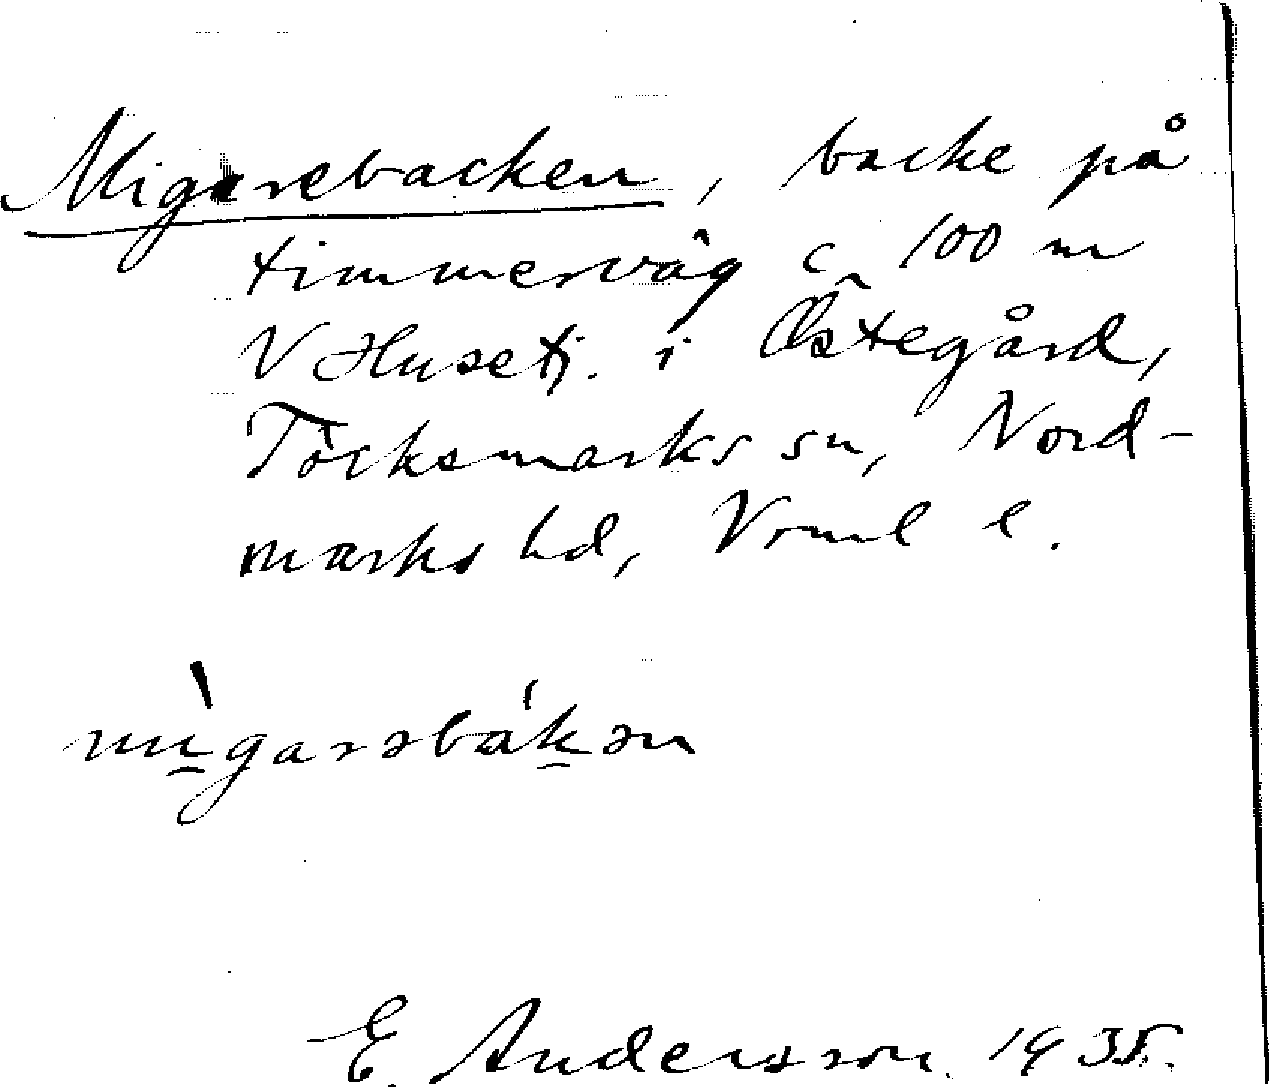 Migarebacken, backe på
timmerväg c 100 m
V Husetj. i Östegård,
Töcksmarks sn, Nord-
marks hd, Vrml l.
mìgarəbákən
E. Andersson 1935.